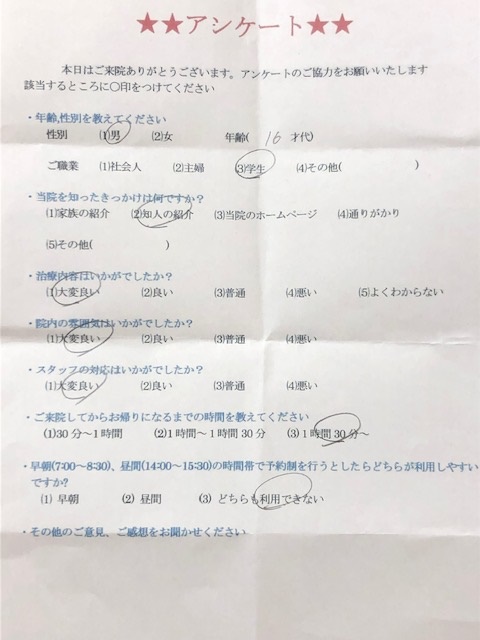 ★★アンケート★★
本日はご来院ありがとうございます。アンケートのご協力をお願いいたします
該当するところに〇印をつけてください
・年齢,性別を教えてください
性別 (1)男 (2)女 年齢( 16 才代)
ご職業 (1)社会人 (2)主婦 (3)学生 (4)その他( )
・当院を知ったきっかけは何ですか?
(1)家族の紹介 (2)知人の紹介 (3)当院のホームページ (4)通りがかり
(5)その他( )
・治療内容はいかがでしたか?
(1)大変良い (2)良い (3)普通 (4)悪い (5)よくわからない
・院内の雰囲気はいかがでしたか?
(1)大変良い (2)良い (3)普通 (4)悪い
・スタッフの対応はいかがでしたか?
(1)大変良い (2)良い (3)普通 (4)悪い
・ご来院してからお帰りになるまでの時間を教えてください
(1)30分～1時間 (2)1時間～1時間30分 (3)1時間30分～
・早朝(7:00～8:30)、昼間(14:00～15:30)の時間帯で予約制を行うとしたらどちらが利用しやすい
ですか?
(1) 早朝 (2) 昼間 (3) どちらも利用できない
・その他のご意見、ご感想をお聞かせください